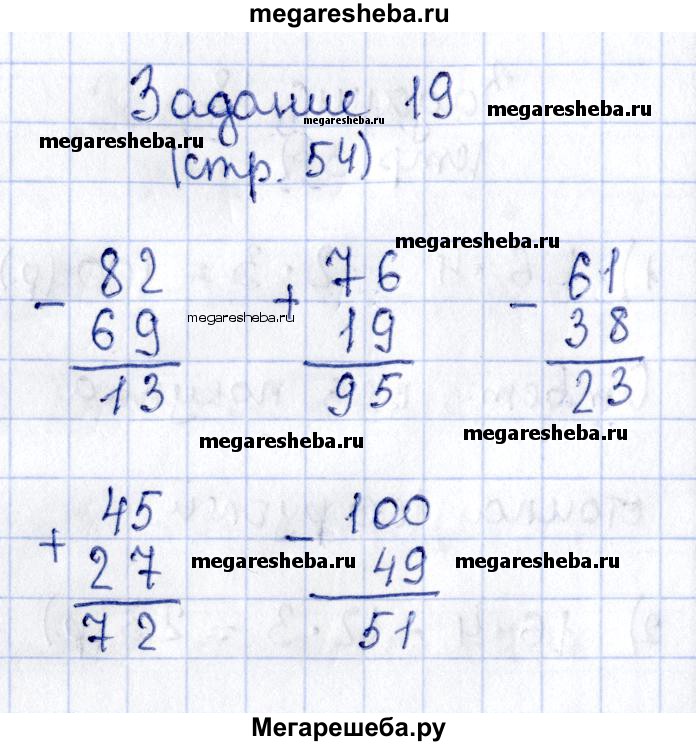 megaresheba.ru
Задание 19
megaresheba.ru
megaresheba.ru
megaresheba.ru
(стр. 54)
megaresheba.ru
- 82
69
13
megaresheba.ru
+ 76
19
95
- 61
38
23
megaresheba.ru
megaresheba.ru
+ 45
27
72
megaresheba.ru
- 100
49
51
megaresheba.ru
Мегарешеба.ру